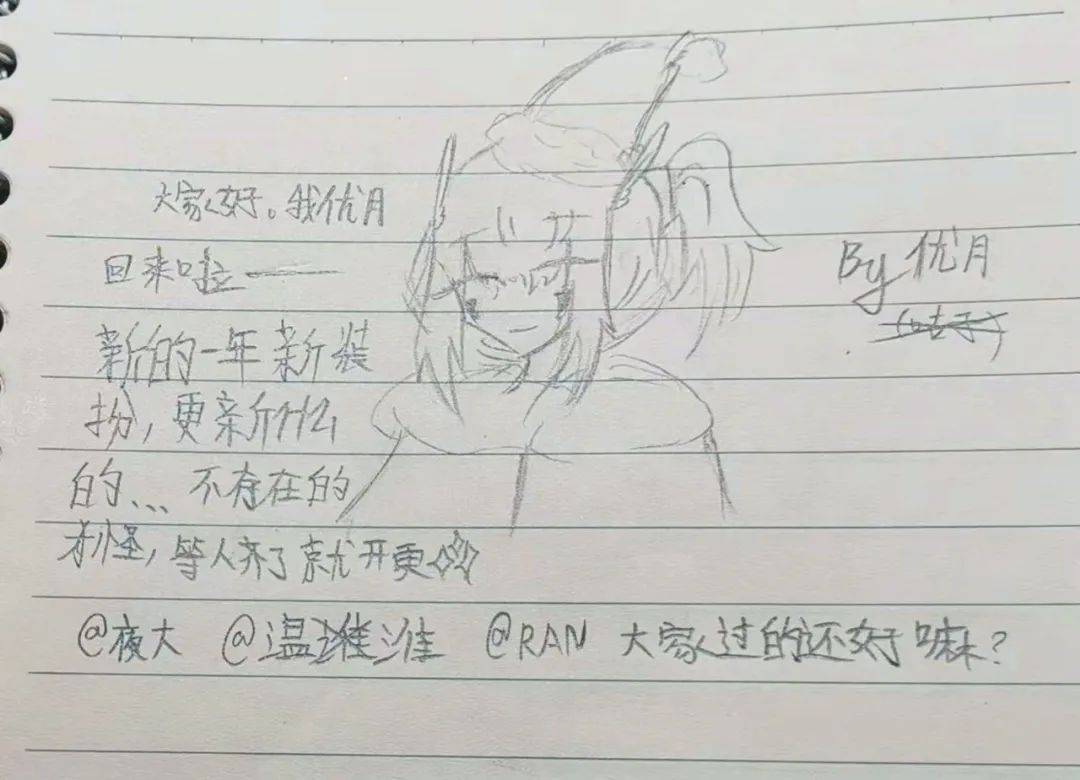 大家好。我优月
回来啦——
新的一年新装
扮，更新什么
的... 不存在的
才怪，等人齐了就开更
@夜大 @温淮 @RAN 大家过的还好嘛？
By 优月